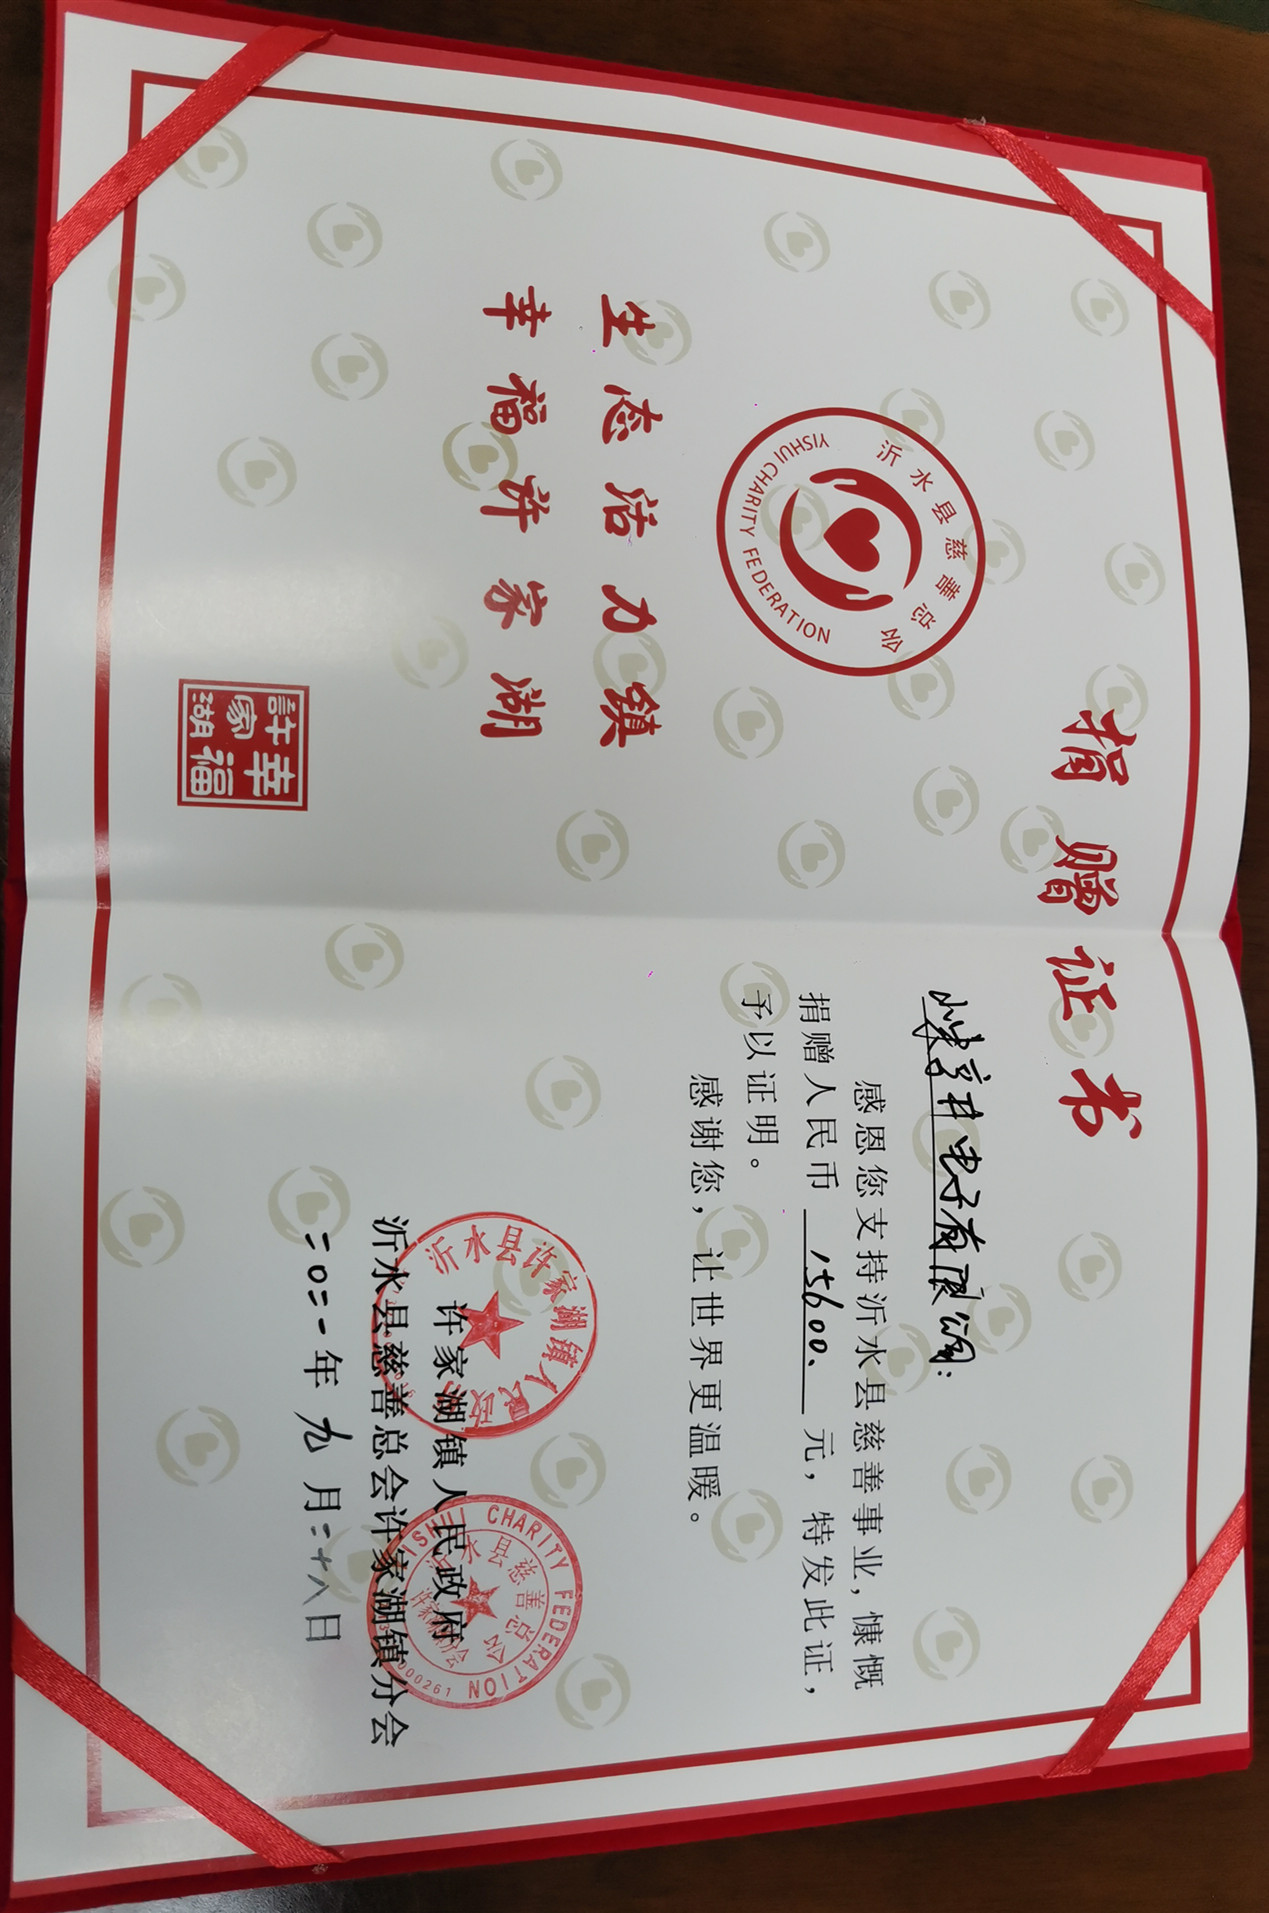 捐赠证书
沂水县慈善总会
YISHUI CHARITY FEDERATION
生态活力镇
幸福许家湖
幸福
許家湖
电子有限公司：
感恩您支持沂水县慈善事业，慷慨
捐赠人民币 15600、 元，特发此证，
予以证明。
感谢您，让世界更温暖。
许家湖镇人民政府
沂水县慈善总会许家湖镇分会
二〇二一年九月二十八日
沂水县许家湖镇人民政
YISHUI CHARITY FEDERATION
沂水县慈善总会